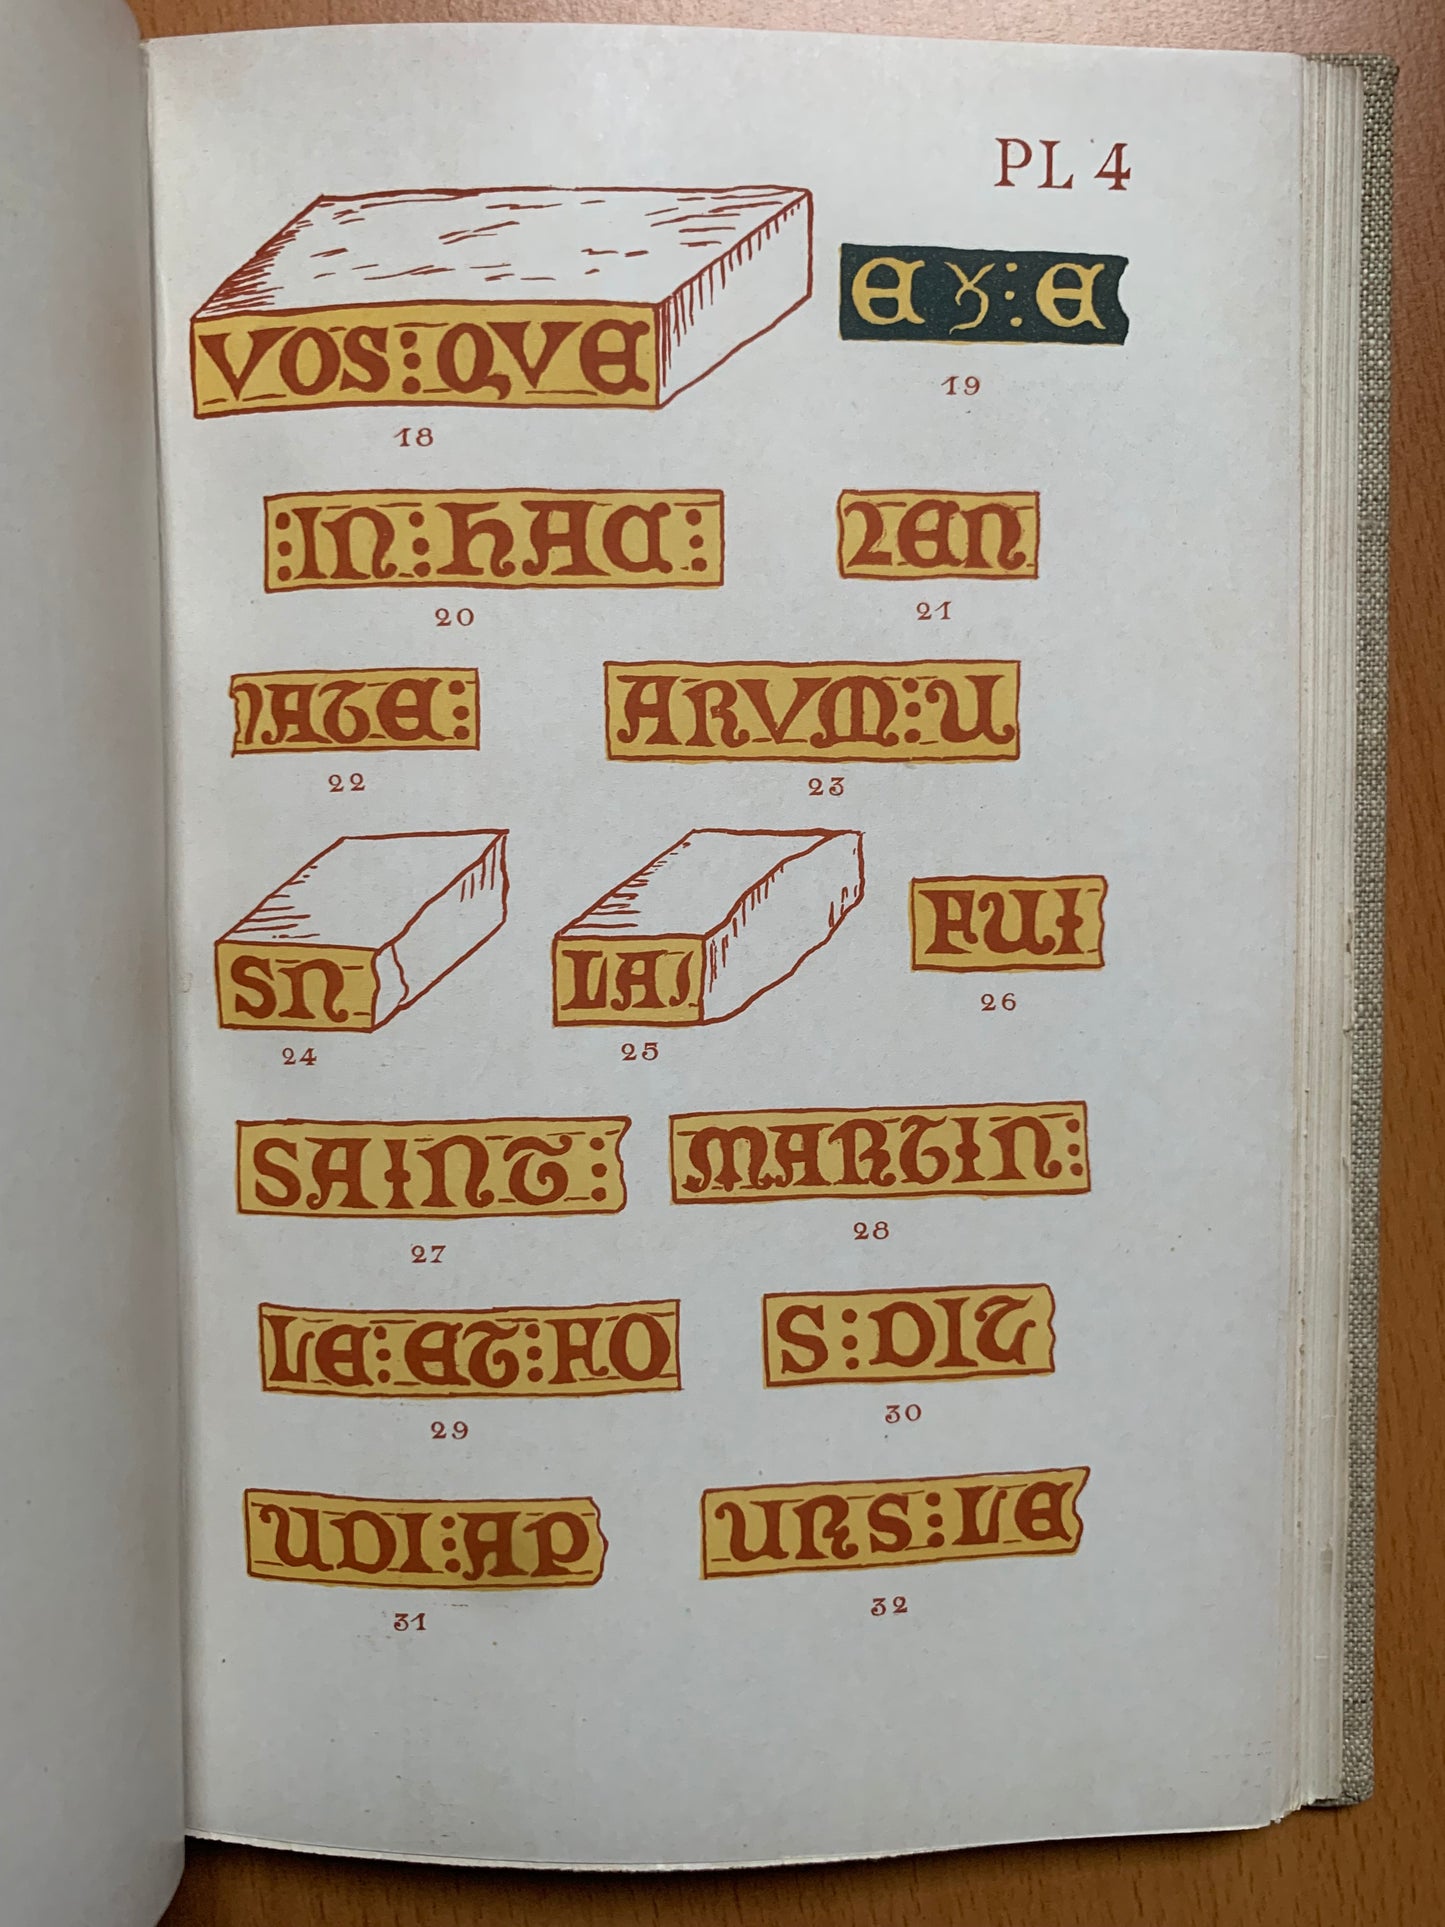 PL 4
VOS⁝QVE
E Ȝ : E
18
19
⁝IN⁝HAC⁝
ZEN
20
21
NATE⁝
ARVM⁝U
22
23
SN
LAI
FUI
24
25
26
SAINT⁝
MARTIN⁝
27
28
LE⁝ET⁝HO
S⁝DIT
29
30
UDI⁝AP
URS⁝LE
31
32